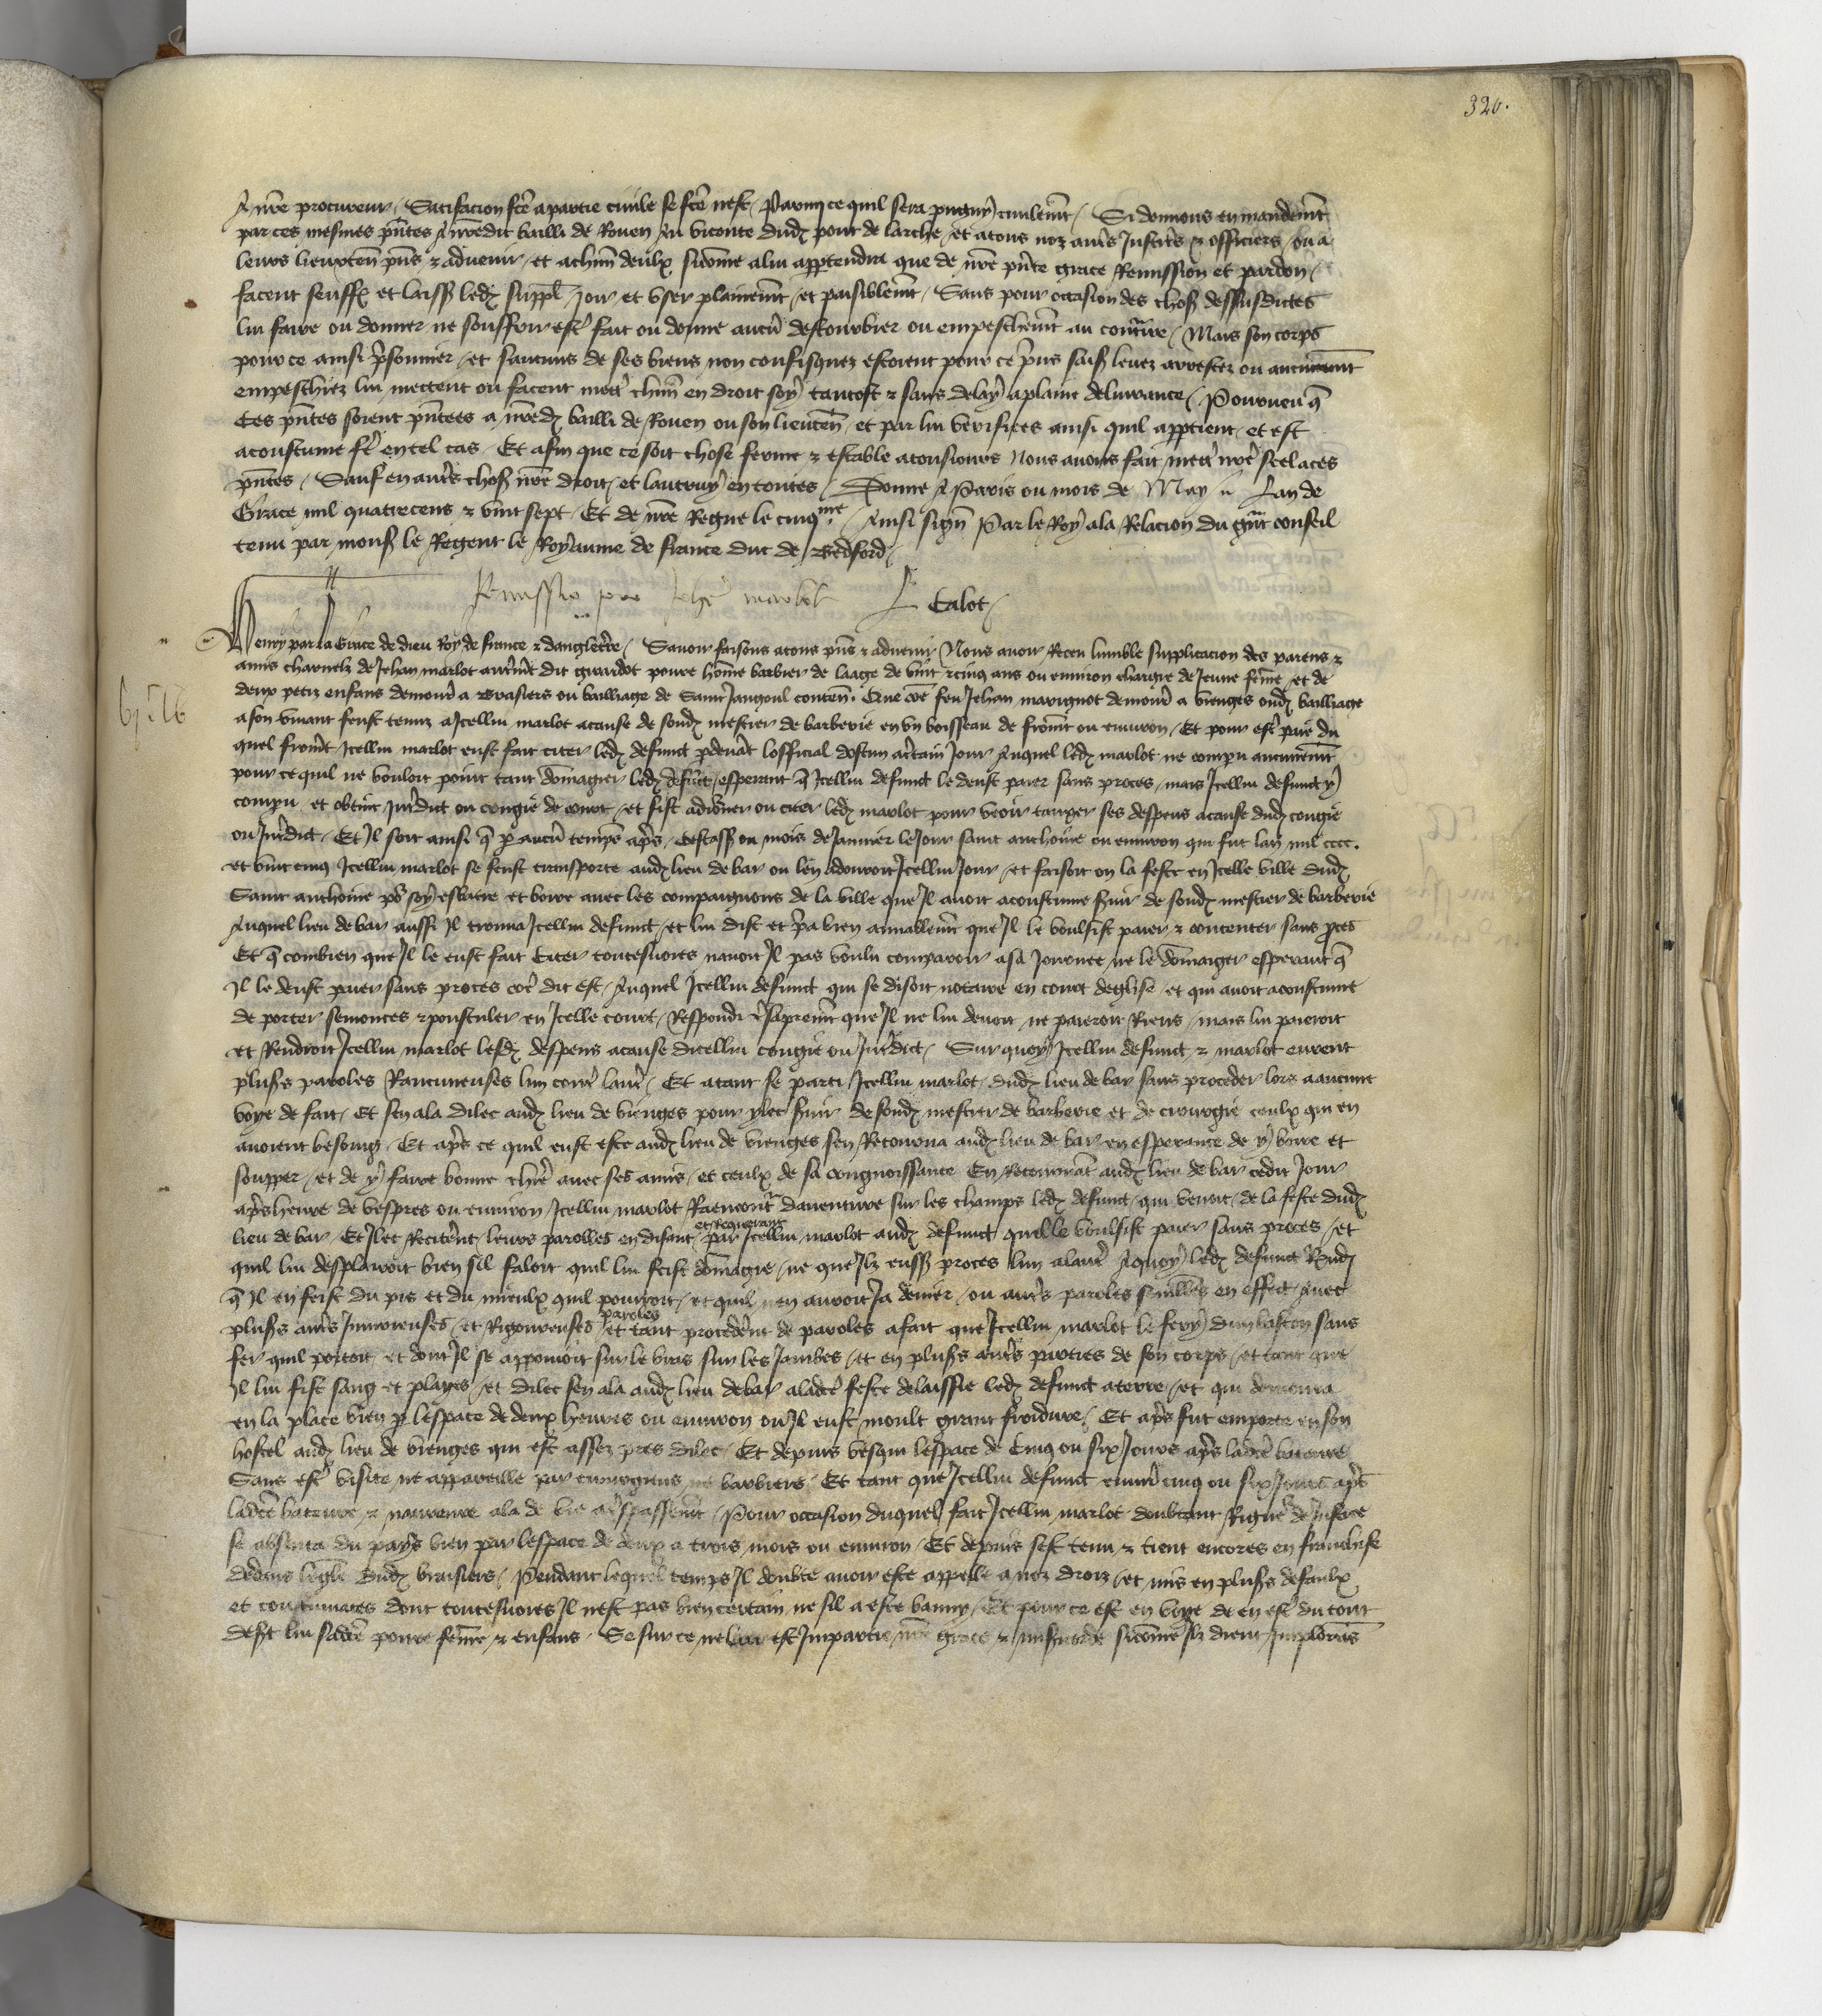 320.
A nre procureur / Satisfacion fcē a partie civile se fcē nest / Parmy ce quil sera pugny civilemēt / Si donnons en mandemēt
par ces mesmes pñtes A nredit bailli de Rouen Au viconte dudꝫ pont de larche / et a tous noz autrēs Justicrēs & officiers / ou a
leurs lieuxtenñ pñs & advenir / et a chūn deulx sicōme a lui appartendra que de nrē pñte grace Remission et pardon /
facent seuffrē et laissēt ledꝫ supplī / Joir et user plainemēt / et paisiblemēt / Sans pour occasion des chosēs dessusdictes
lui faire ou donner / ne souffrir estrē fait ou donne aucū destourbier ou empeschemēt au contraire / Mais son corps
pour ce ainsi p̄sonnier / et saucuns de ses biens non confisquez estoient pour ce p̄ns saisiz levez arrestez ou aucunemēt
empeschiez lui mettent ou facent mettrē chūn en droit soy tantost & sans delay a plaine delivrance / Pourveu q̄
Ces pñtes soient pñtees a nredꝫ bailli de Rouen ou son lieutenñ / et par lui verifiees ainsi quil appartient / et est
acoustume frē en tel cas / Et afin que ce soit chose ferme & estable a tousjours Nous avons fait mettrē nrē seel a ces
pñtes / Sauf en autrēs chosēs nrē droit / et lautruy en toutes / Donne A Paris ou mois de May Lan de
Grace mil quatrecens & vint sept / Et de nrē Regne le cinqme / Ainsi signē Par le Roy a la Relacion du grāt conseil
tenu par monsēr le Regent le Royaume de france duc de Bedford /
Remissio pro Jehē marlot Calot /
Henry par la Grace de dieu Roy de france & dangleterrē / Savoir faisons a tous pñs & advenir / Nous avoir Receu lumble supplicacion des parens &
amis charnelz de Jehan marlot autremēt dit girardot povre hōme barbier de laage de vint & cinq ans ou environ chargie de Jeune fēme / et de
deux petiz enfans demourā a Brasiers ou bailliage de Saint Jangoul contenñ / Que cōe feu Jehan marignot demourā a vienges oudꝫ bailliage
a son vivant feust tenuz a Icellui marlot a cause de sondꝫ mestier de barberie en un boisseau de fromēt ou environ / Et pour estrē paiē du
quel fromēt Icellui marlot eust fait citer ledꝫ defunct p̄devāt lofficial dostun a certain Jour / Auquel ledꝫ marlot ne compu aucunemēt
pour ce quil ne vouloit point tant dōmagier ledꝫ defūct / esperant q̄ Icellui defunct le deust paier sans proces / mais Icellui defunct y
compu / et obtint Jntrdict ou congie de court / et fist adiourner ou citer ledꝫ marlot pour veoir tauxer ses despens a cause dudꝫ congie
ou Jntrdict / Et Il soit ainsi q̄ p̄ aucū temps aprēs / Cestassavoir ou mois de Janvier le Jour saint anthoine ou environ qui fut lan mil cccc.
et vint cinq Icellui marlot se feust transporte audꝫ lieu de bar ou len adouroit Icellui Jour / et faisoit on la feste en Icelle ville dudꝫ
Saint anthoine po' soy esbatre et boire avec les compaignons de la ville que Il avoit acoustume servir de sondꝫ mestier de barberie
Auquel lieu de bar aussi Il trouva Icellui defunct / et lui dist et p̄a bien amiablemēt que Il le voulsist paier & contenter sans proces
Et q̄ combien que Il le eust fait Citer toutesvoies navoit Il pas voulu comparoir a sa Journee / ne le dōmaiger esperant q̄
Il le deust paier sans proces cōe dit est / Auquel Icellui defunct qui se disoit notaire en court deglise / et qui avoit acoustume
de porter semonces & postuler en Icelle court / Respondi aigremēt que Il ne lui devoit / ne paieroit Riens / mais lui paieroit
et Rendroit Icellui marlot lesdꝫ despens a cause dicellui congie ou Jntrdict / Sur quoy Icellui defunct & marlot eurent
plusrēs paroles Rancuneuses lun contrē lautrē / Et atant se parti Icellui marlot dudꝫ lieu de bar sans proceder lors a aucune
voye de fait / Et sen ala dilec audꝫ lieu de vienges pour ylec servir de sondꝫ mestier de barberie et de cirurgie ceulx qui en
avoient besoing / Et aprēs ce quil eust este audꝫ lieu de vienges sen Retourna audꝫ lieu de bar en esperance de y boire et
soupper / et de y faire bonne chierē avec ses amis / et ceulx de sa congnoissance En Retournāt audꝫ lieu de bar cedit Jour
aprēs heure de vespres ou environ / Icellui marlot Rencontrā daventure sur les champs ledꝫ defunct / qui venoit de la feste dudꝫ
lieu de bar / Et Ilec Reciterēt leurs parolles en disant et Requerant par Icellui marlot audꝫ defunct quil le voulsist paier sans proces / et
quil lui desplairoit bien sil faloit quil lui feist dōmagie / ne que Ilz eussēt proces lun a lautrē / A quoy ledꝫ defunct Rndi
q̄ Il en feist du pis et du mieulx quil pourroit / et quil nen auroit Ja denier / ou autrēs paroles semblēs en effect / avec
plusrēs autrēs Injurieuses / et Rigoureuses paroles / et tant procederēt de paroles a fait que Icellui marlot le fery dun baston sans
fer quil portoit / et dont Il se appouioit sur le bras sur les Jambes / et en plusrēs autrēs parties de son corps / et tant que
Il lui fist sang et playes / et dilec sen ala audꝫ lieu de bar a ladctē feste delaissie ledꝫ defunct a terre / et qui demoura
en la place bien p̄ lespace de deux heures ou environ ou Il eust moult grant froidure / Et aprēs fut emporte en son
hostel audꝫ lieu de vienges qui est assez pres dilec / Et depuis vesqui lespace de Cinq ou six Jours aprēs ladctē bateure
Sans estrē visite ne appareille par cirurgiens ne barbiers / Et tant que Icellui defunct environ cinq ou six Jours aprēs
ladctē bateure & navreure ala de vie a trespassemēt / Pour occasion duquel fait Icellui marlot doubtant Rigueur de Justice
se absenta du pays bien par lespace de deux a trois mois ou environ / Et depuis sest tenu & tient encores en franchise
dedans leglīse dudꝫ braisiers / Pendant lequel temps Il doubte avoir este appelle a noz droiz / et mis en plusrēs defaulx
et contumaces dont toutesvoies Il nest pas bien certain / ne sil a este banny / Et pour ce est en voye de en estrē du tout
desert lui sadctē povre fēme & enfans / Se sur ce ne lui est Impartie nrē grace & misericorde sicōme Ilz dient / Implorans